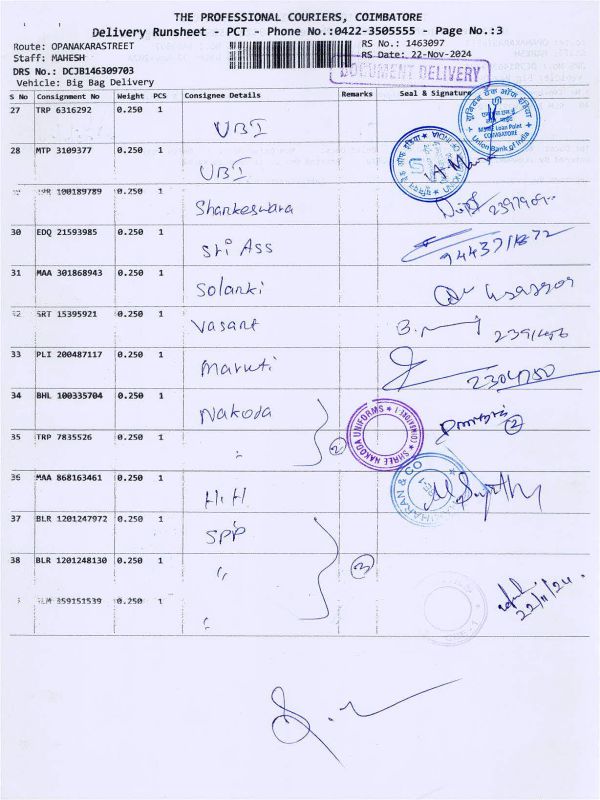 THE PROFESSIONAL COURIERS, COIMBATORE
Delivery Runsheet - PCT - Phone No.:0422-3505555 - Page No.:3
Route: OPANAKARASTREET
Staff: MAHESH
RS No.: 1463097
RS Date: 22-Nov-2024
DRS No.: DCJB146309703
DOCUMENT DELIVERY
Vehicle: Big Bag Delivery
S No Consignment No Weight PCS Consignee Details Remarks Seal & Signature
27 TRP 6316292 0.250 1 UBI
Union Bank of India
28 MTP 3109377 0.250 1 UBI
100189789 0.250 1 Shankeswara
30 EDQ 21593985 0.250 1 Sri Ass
31 MAA 301868943 0.250 1 Solanki
SRT 15395921 0.250 1 Vasant
33 PLI 200487117 0.250 1 Maruti
34 BHL 100335704 0.250 1 Nakoda
SHREE NAKODA UNIFORMS
35 TRP 7835526 0.250 1 " 2
36 MAA 868163461 0.250 1 H.H
37 BLR 1201247972 0.250 1 SPP
38 BLR 1201248130 0.250 1 " 3
359151539 0.250 1 "
22/11/24